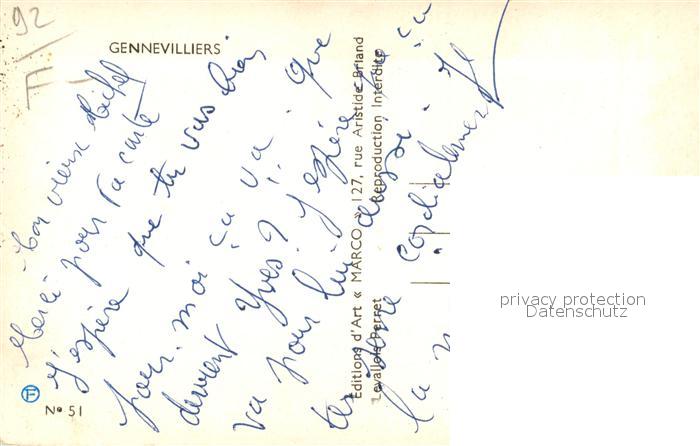 92
GENNEVILLIERS
Mon vieux Michel
Merci pour ta carte
J'espère que tu vas bien
pour moi ça va que
devient Yves ?
va pour lui j'espère que ça
la
Cordialement
Editions d'Art « MARCO » 127, rue Aristide Briand
Levallois-Perret Reproduction Interdite
N° 51
privacy protection
Datenschutz